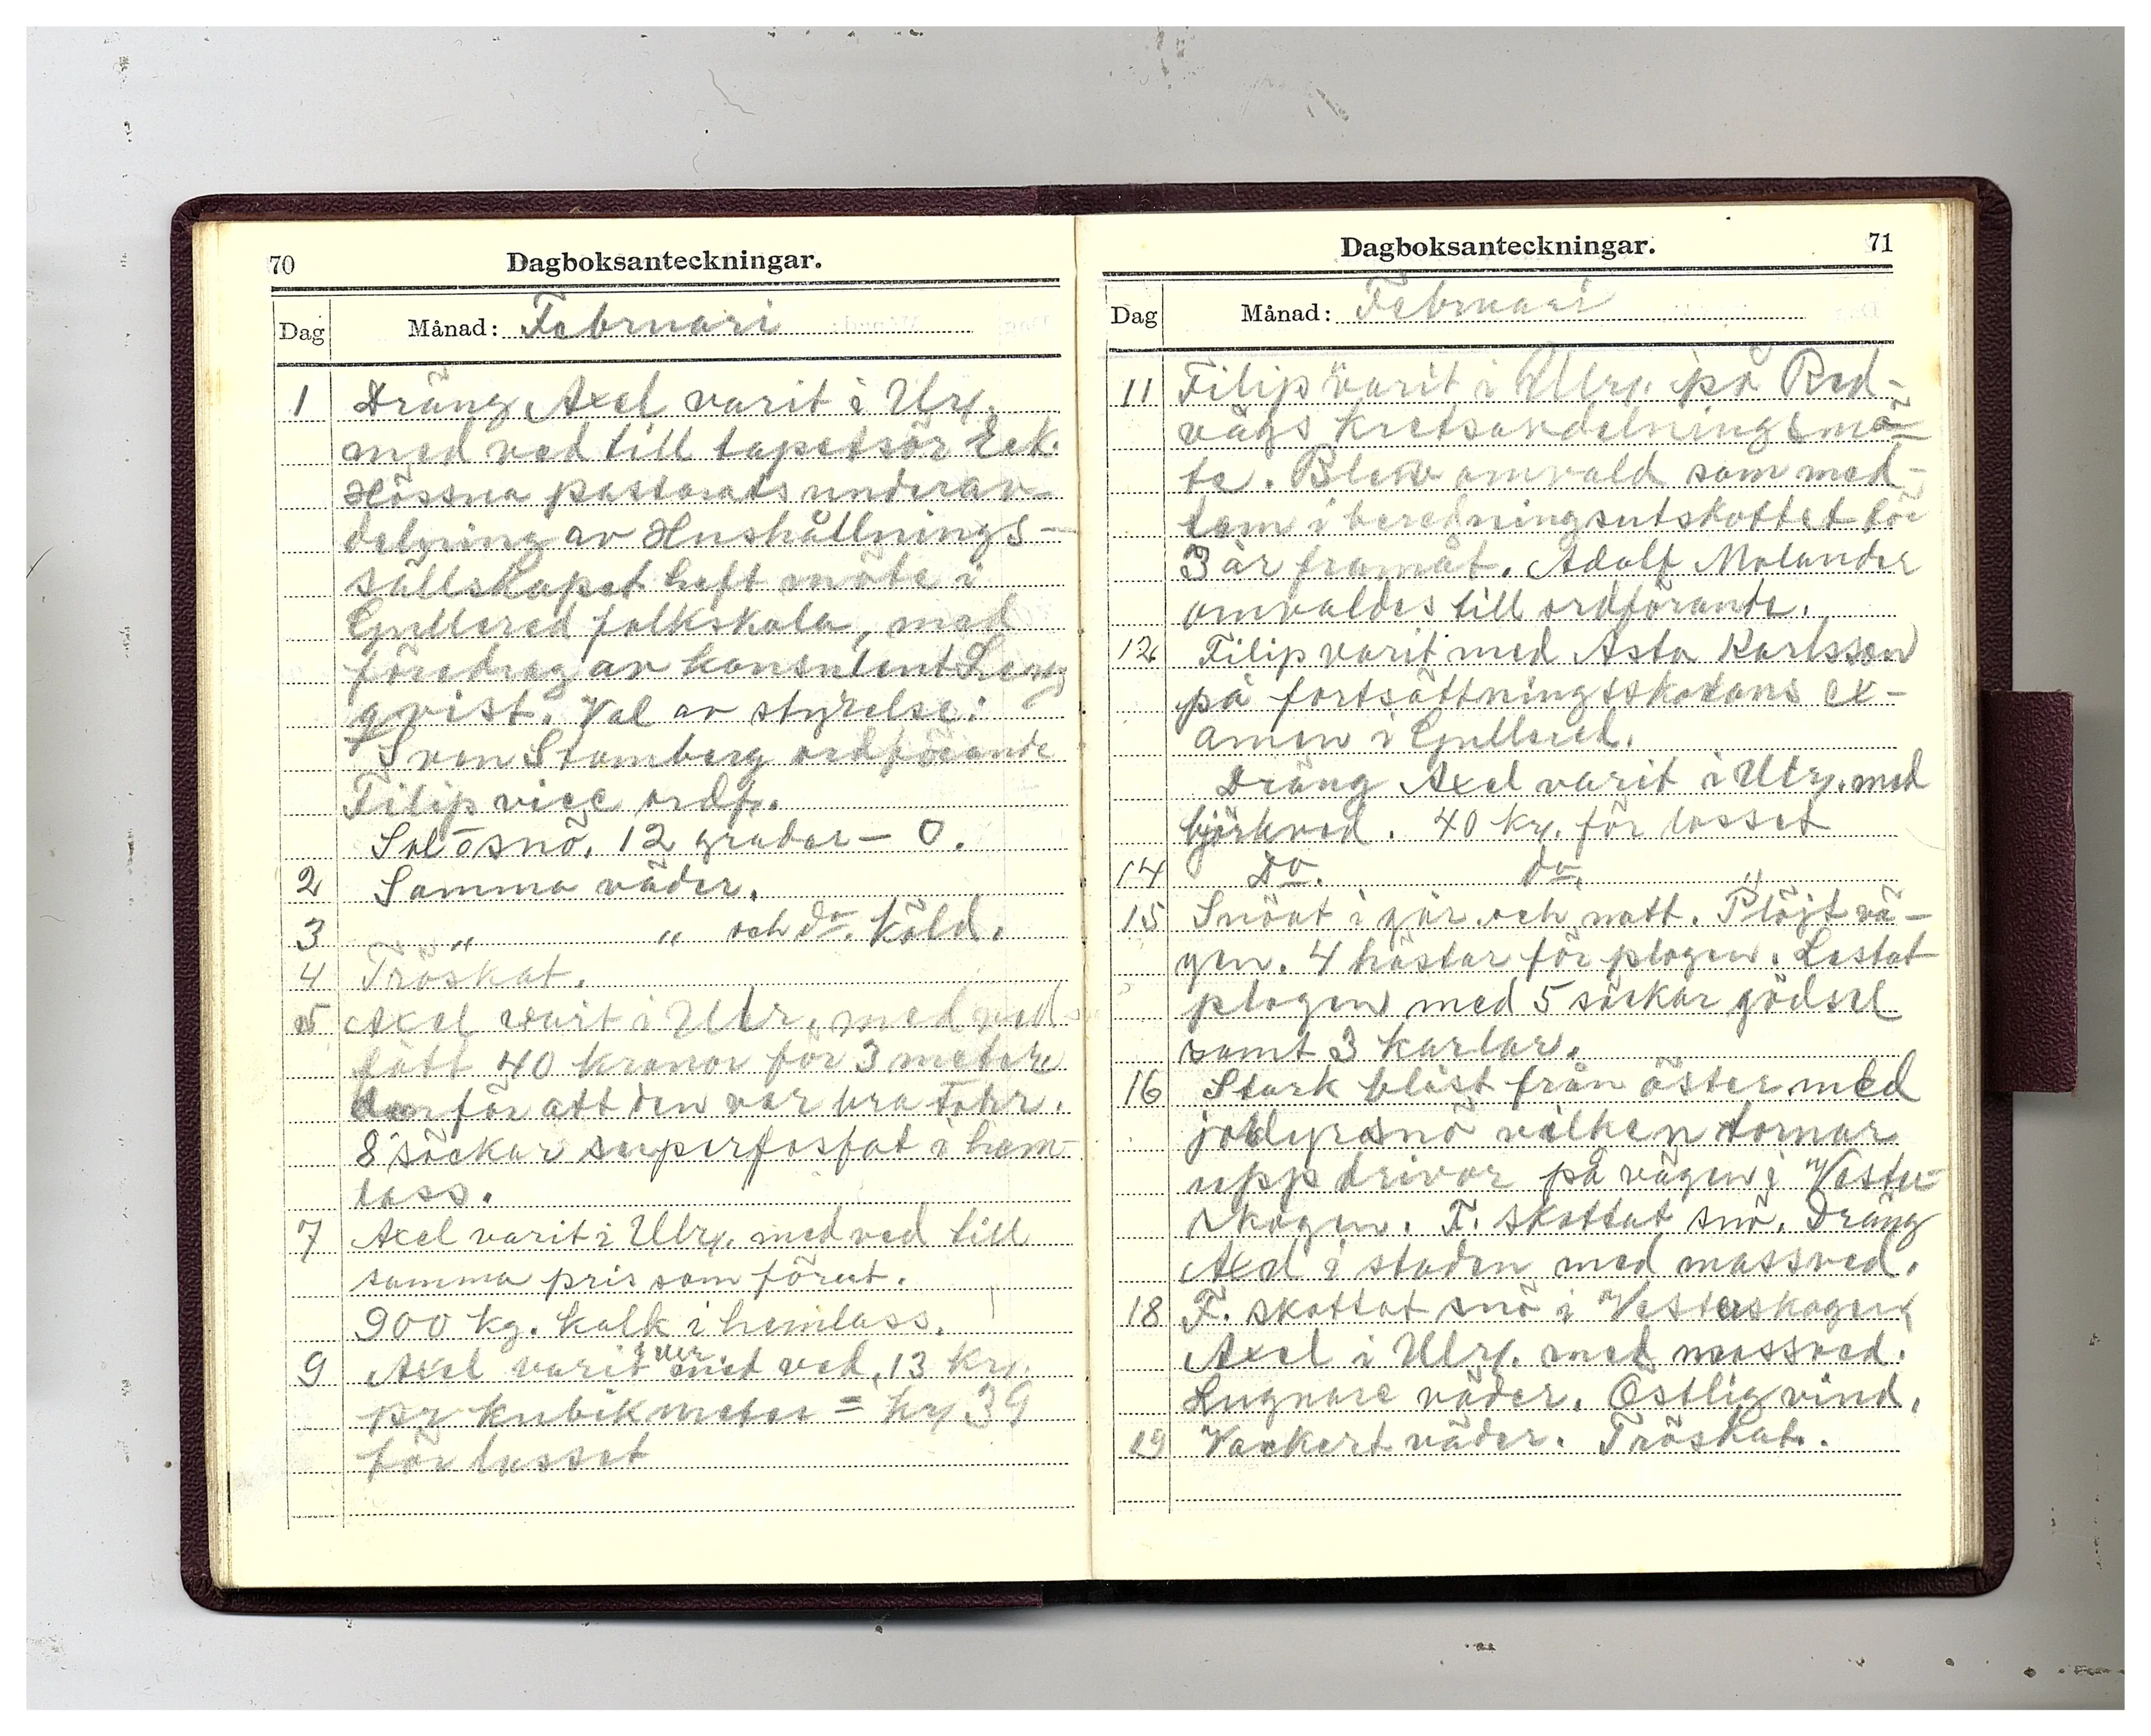 70
Dagboksanteckningar.
Dag
Månad: Februari
1 Dräng Axel varit i Ulr.
med ved till tapetsör Eek.
Hössna pastorats underav-
delning av Hushållnings-
sällskapet haft möte i
Gullered folkskola, med
föredrag av konsulent
qvist. Val av styrelse:
Sven Stomberg ordförande
Filip vice ordf.
Sol o snö. 12 grader – 0.
2 Samma väder.
3 " " och do. köld.
4 Tröskat.
5 Axel varit i Ulr. med ved
fått 40 kronor för 3 meter
för att den var bra torr.
8 säckar superfosfat i hem-
lass.
7 Axel varit i Ulr. med ved till
samma pris som förut.
900 kg. kalk i hemlass.
9 Axel varit över med ved, 13 Kr.
pr kubikmeter = kr 39
för lasset
71
Dagboksanteckningar.
Dag
Månad: Februari
11 Filip varit i Ulr. på Red-
vägs kretsavdelningsmö-
te. Blev omvald som med-
lem i beredningsutskottet för
3 år framåt. Adolf Molander
omvaldes till ordförande.
12 Filip varit med Asta Karlsson
på fortsättningsskolans ex-
amen i Gullered.
Dräng Axel varit i Ulr. med
björkved. 40 kr. för lasset
14 Do. do. "
15 Snöat i går och natt. Plöjt vä-
gen. 4 hästar för plogen. Lastat
plogen med 5 säckar gödsel
samt 3 karlar.
16 Stark blåst från öster med
snö vilken tornar
upp drivor på vägen i Vester-
skogen. F. skottat snö. Dräng
Axel i staden med massved.
18 F. skottat snö i Vesterskogen
Axel i Ulr. med massved.
Lugnare väder. Östlig vind.
19 Vackert väder. Tröskat.